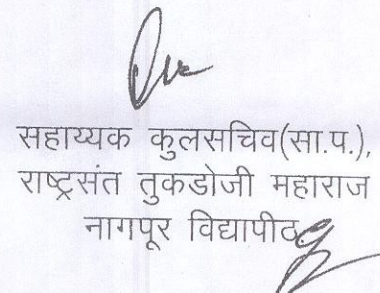 सहाय्यक कुलसचिव(सा.प.),
राष्ट्रसंत तुकडोजी महाराज
नागपूर विद्यापीठ